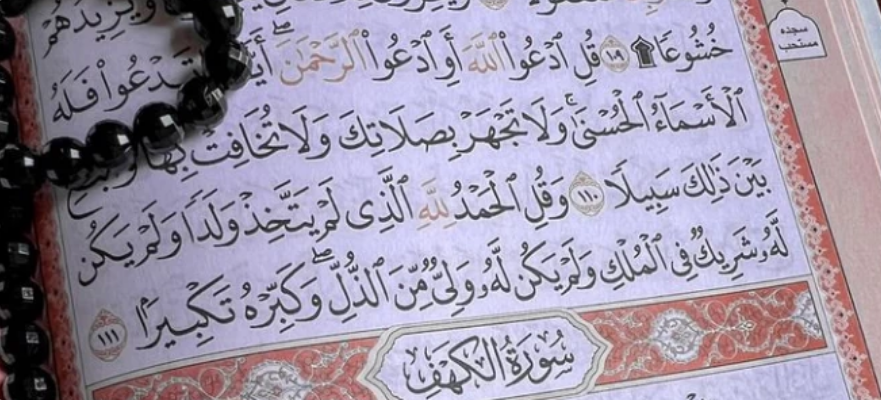 وَيَزِيدُهُمْ
خُشُوعًا ۩ ١٠٩ قُلِ ٱدْعُواْ ٱللَّهَ أَوِ ٱدْعُواْ ٱلرَّحْمَٰنَۖ تَدْعُواْ فَلَهُ
ٱلْأَسْمَآءُ ٱلْحُسْنَىٰۚ وَلَا تَجْهَرْ بِصَلَاتِكَ وَلَا تُخَافِتْ بِهَا
بَيْنَ ذَٰلِكَ سَبِيلًا ١١٠ وَقُلِ ٱلْحَمْدُ لِلَّهِ ٱلَّذِى لَمْ يَتَّخِذْ وَلَدًا وَلَمْ يَكُن
لَّهُۥ شَرِيكٌ فِى ٱلْمُلْكِ وَلَمْ يَكُن لَّهُۥ وَلِىٌّ مِّنَ ٱلذُّلِّۖ وَكَبِّرْهُ تَكْبِيرًۢا ١١١
سُورَةُ الكَهْفِ
سجده
مستحب